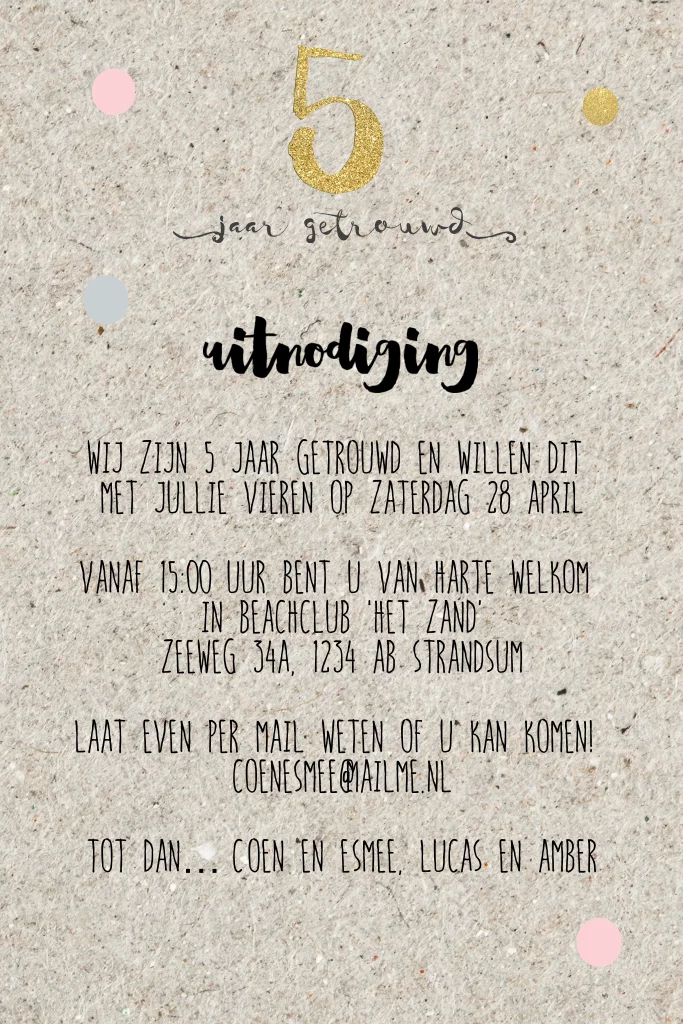 5
jaar getrouwd
uitnodiging
WIJ ZIJN 5 JAAR GETROUWD EN WILLEN DIT
MET JULLIE VIEREN OP ZATERDAG 28 APRIL
VANAF 15:00 UUR BENT U VAN HARTE WELKOM
IN BEACHCLUB 'HET ZAND'
ZEEWEG 34A, 1234 AB STRANDSUM
LAAT EVEN PER MAIL WETEN OF U KAN KOMEN!
COENESMEE@MAILME.NL
TOT DAN... COEN EN ESMEE, LUCAS EN AMBER